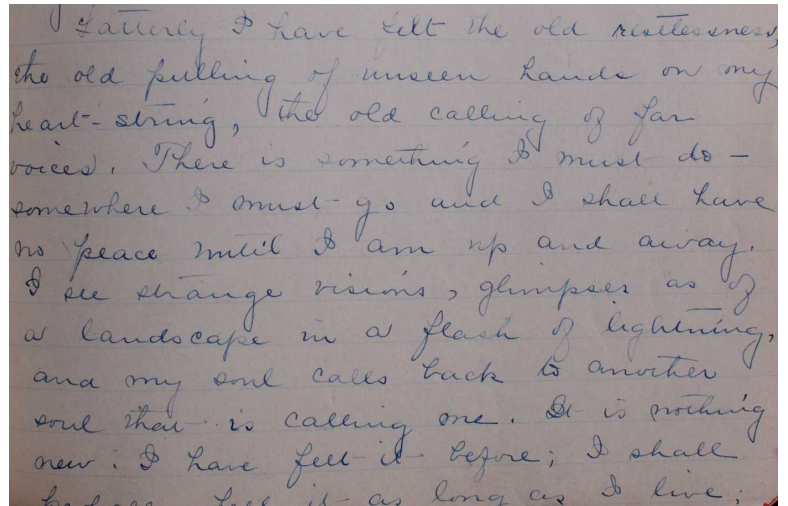 Latterly I have felt the old restlessness,
the old pulling of unseen hands on my
heart-string, the old calling of far
voices. There is something I must do -
somewhere I must go and I shall have
no peace until I am up and away.
I see strange visions, glimpses as of
a landscape in a flash of lightning,
and my soul calls back to another
soul that is calling me. It is nothing
new: I have felt it before; I shall
feel it as long as I live;